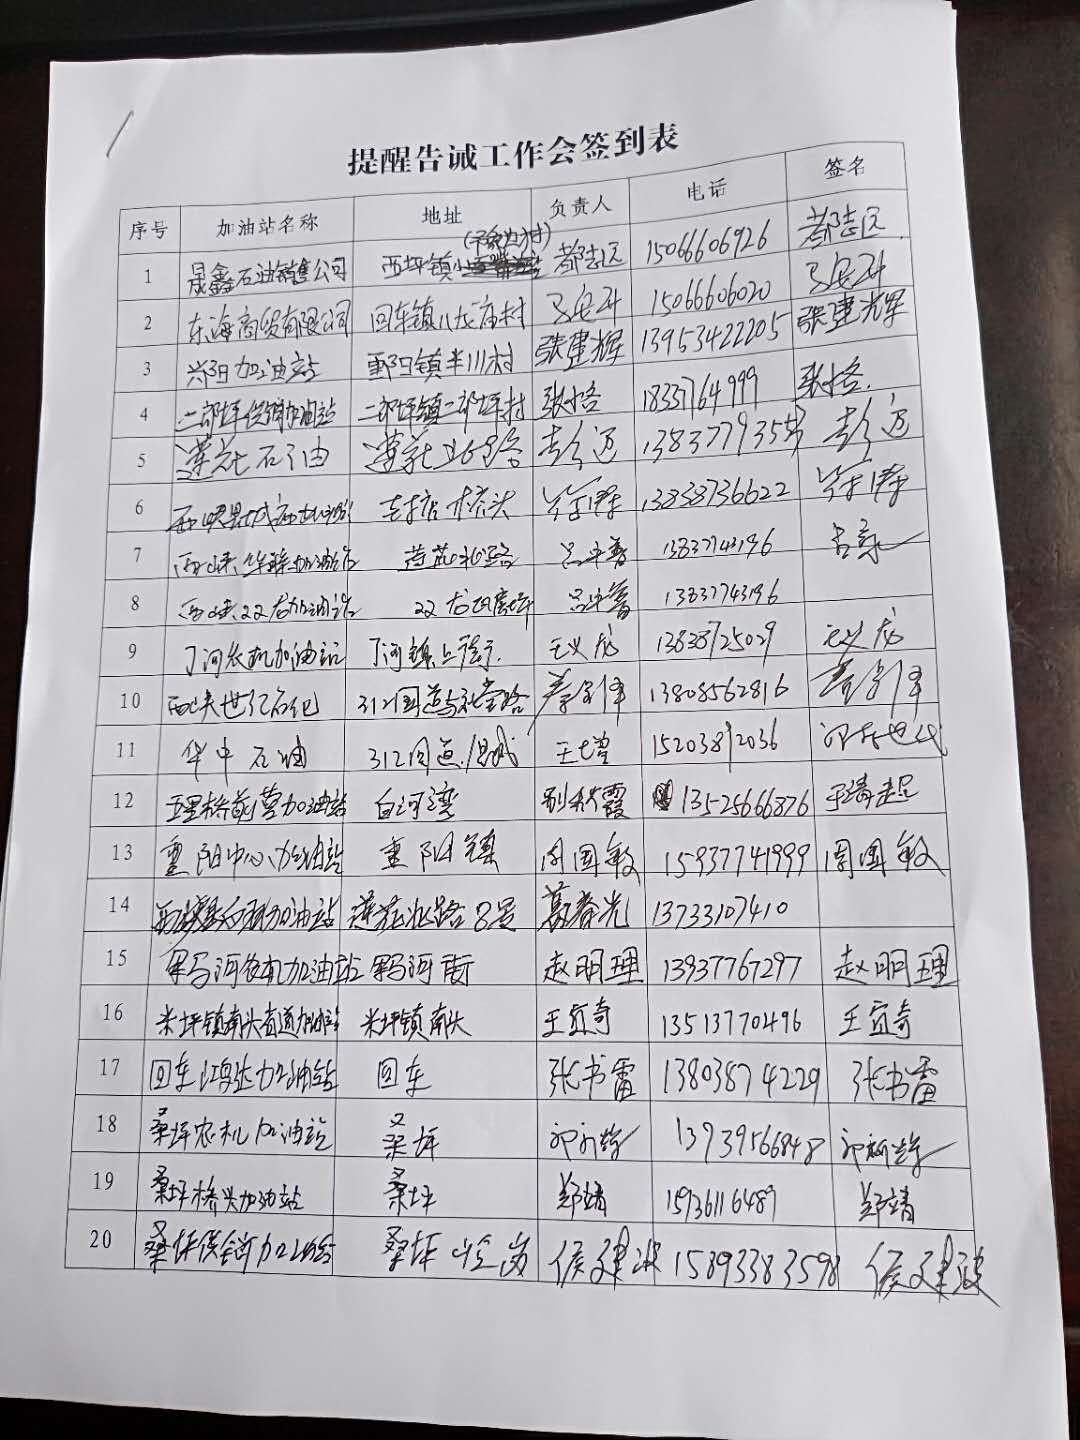 提醒告诫工作会签到表
序号 加油站名称 地址 负责人 电话 签名
1 晟鑫石油销售公司 西坪镇 都志远 15066606926 都志远
2 东海商贸有限公司 回车镇八龙庙村 15066606020
3 兴阳加油站 重阳镇半川村 张建辉 13953422205 张建辉
4 二郎坪供销加油站 二郎坪镇二郎坪村 张恪 1833764999 张恪
5 莲花石油 莲花北路 彭迈 彭迈
6 桥头 13838736622
7 西峡华联加油站 莲花北路 13837743196
8 西峡双龙加油站 双龙 13837743196
9 丁河农机加油站 丁河镇上街 王义龙 13838725029 王义龙
10 西峡世亿石化 312国道与礼堂路 13803562816
11 华中石油 312国道 15203872036
12 五里桥前营加油站 白河湾 别秋霞 13525666876 于靖超
13 重阳中心加油站 重阳镇 周国敏 15937741999 周国敏
14 加油站 莲花北路8号 葛春光 13733107410
15 军马河农机加油站 军马河街 赵明理 13937767297 赵明理
16 米坪镇南头省道加油站 米坪镇南头 王宜奇 13513770496 王宜奇
17 回车鸿达加油站 回车 张书雷 13803874229 张书雷
18 桑坪农机加油站 桑坪 13939566848
19 桑坪桥头加油站 桑坪 郑靖 15936116489 郑靖
20 桑坪供销加油站 桑坪 侯建波 15893383598 侯建波